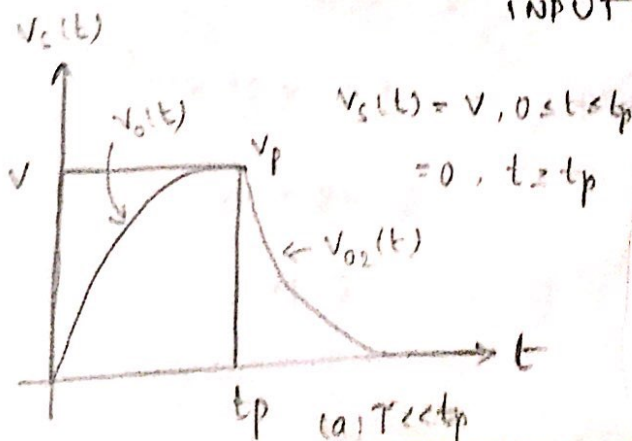 INPUT
Vs(t)
Vs(t) = V, 0 ≤ t ≤ tp
= 0, t ≥ tp
Vo(t)
V
Vp
← Vo2(t)
t
tp
(a) T<<tp